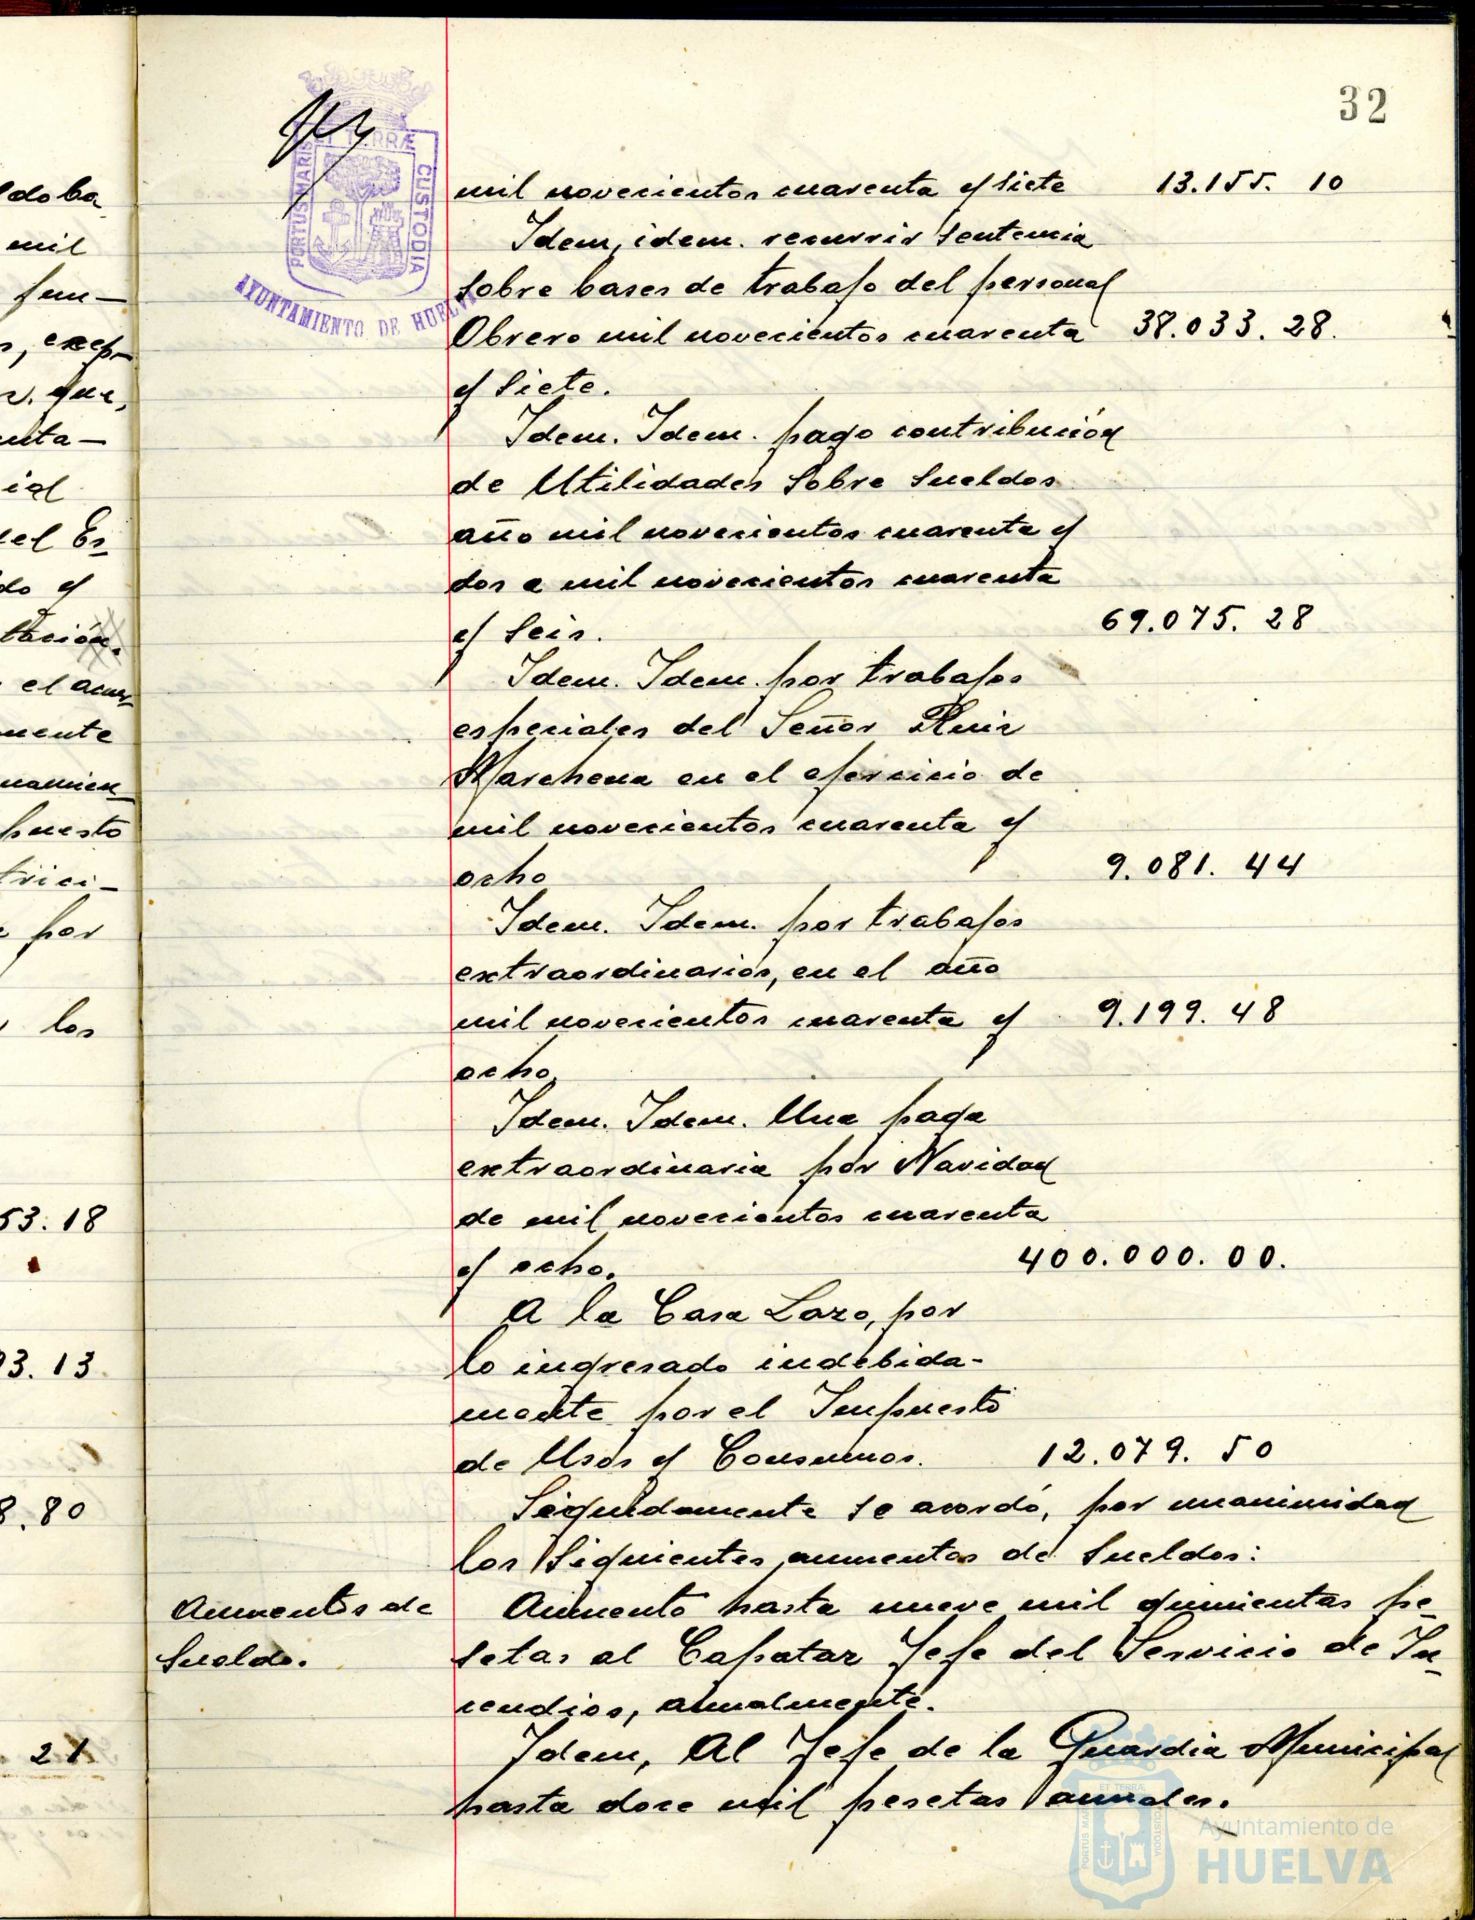 32
PORTUS MARIS ET TERRÆ CUSTODIA
AYUNTAMIENTO DE HUELVA
mil novecientos cuarenta y siete 13.155. 10
Idem, idem. recurrir sentencia
sobre bases de trabajo del personal
Obrero mil novecientos cuarenta 38.033. 28.
y siete.
Idem. Idem. pago contribución
de Utilidades sobre sueldos
año mil novecientos cuarenta y
dos a mil novecientos cuarenta
y seis. 69.075. 28
Idem. Idem. por trabajos
especiales del Señor Ruiz
Marchena en el ejercicio de
mil novecientos cuarenta y
ocho 9.081. 44
Idem. Idem. por trabajos
extraordinarios, en el año
mil novecientos cuarenta y 9.199. 48
ocho.
Idem. Idem. Una paga
extraordinaria por Navidad
de mil novecientos cuarenta
y ocho. 400.000.00.
A la Casa Lazo, por
lo ingresado indebida-
mente por el Impuesto
de Usos y Consumos. 12.079. 50
Seguidamente se acordó, por unanimidad
los siguientes aumentos de sueldos:
Aumentos de
sueldo.
Aumento hasta nueve mil quinientas pe-
setas al Capataz Jefe del Servicio de In-
cendios, anualmente.
Idem, Al Jefe de la Guardia Municipal
hasta doce mil pesetas anuales.
ldo ba
mil
fun-
s, excep-
que,
nta-
ial
el Es-
do y
tación.
el acuer-
mente
namien-
puesto
trici-
por
los
53.18
93.13
8.80
21
Ayuntamiento de
HUELVA